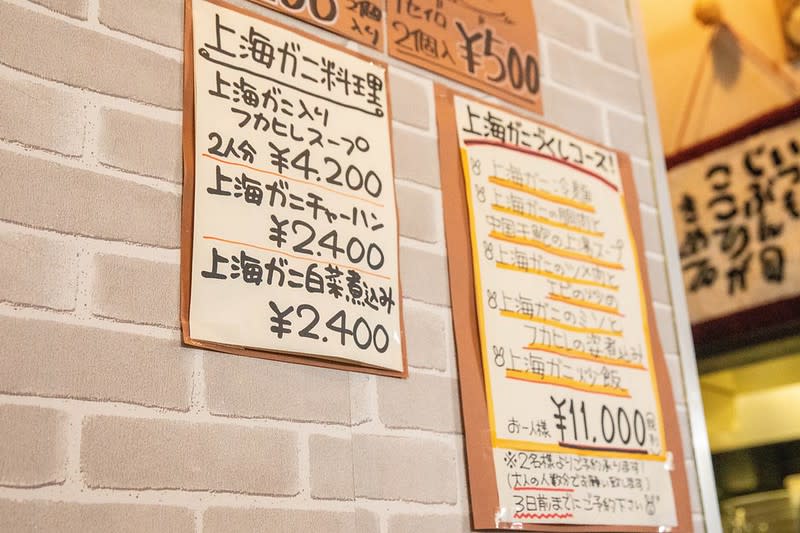 3個入り
1セイロ
2個入 ¥500
上海ガニ料理
上海ガニ入り
フカヒレスープ
2人分 ¥4.200
上海ガニチャーハン
¥2.400
上海ガニ白菜煮込み
¥2.400
上海ガニづくしコース!
上海ガニ冷麺
上海ガニの腿肉と
中国干鮑の上湯スープ
上海ガニのツメ肉と
エビの炒め
上海ガニのミソと
フカヒレの姿煮込み
上海ガニ炒飯
お一人様 ¥11,000
※2名様よりご予約承ります
(大人の人数分でお願い致します)
3日前までにご予約下さい
いつも
じぶんの
こころが
きめる